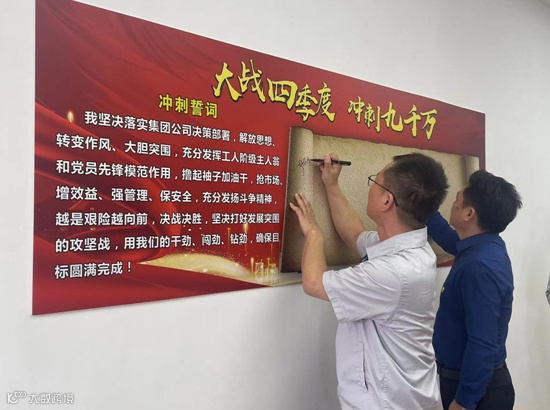 大战四季度 冲刺九千万
冲刺誓词
我坚决落实集团公司决策部署，解放思想、
转变作风、大胆突围，充分发挥工人阶级主人翁
和党员先锋模范作用，撸起袖子加油干，抢市场、
增效益、强管理、保安全，充分发扬斗争精神，
越是艰险越向前，决战决胜，坚决打好发展突围
的攻坚战，用我们的干劲、闯劲、钻劲，确保目
标圆满完成！
大数跨境